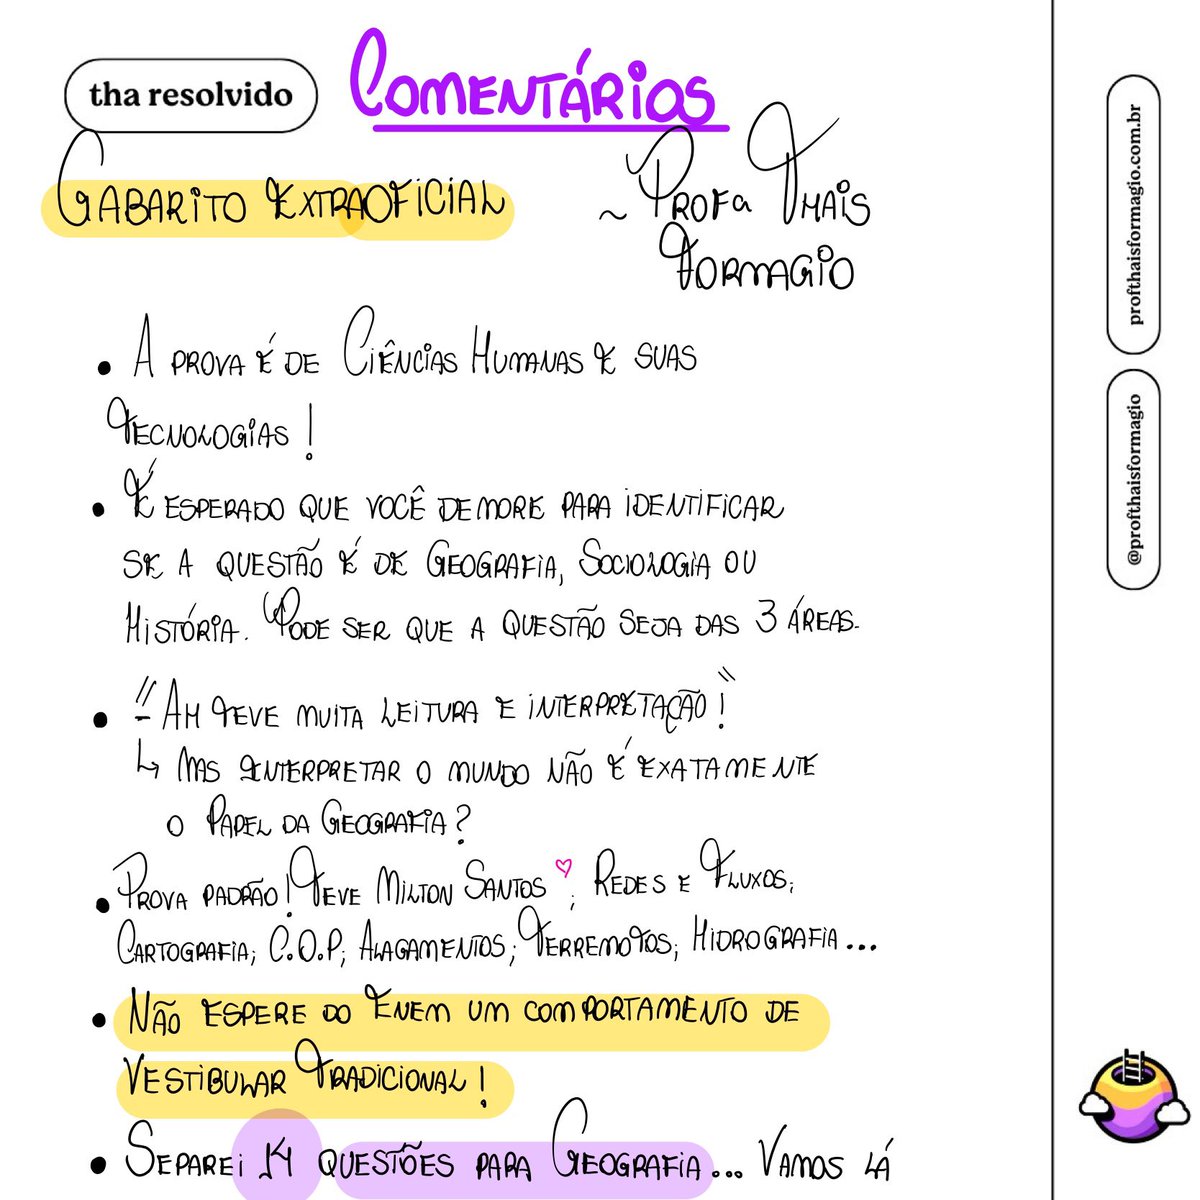 tha resolvido
COMENTÁRIOS
GABARITO EXTRAOFICIAL
~ PROFa THAIS
FORMAGIO
• A PROVA É DE CIÊNCIAS HUMANAS E SUAS
TECNOLOGIAS!
• É ESPERADO QUE VOCÊ DEMORE PARA IDENTIFICAR
SE A QUESTÃO É DE GEOGRAFIA, SOCIOLOGIA OU
HISTÓRIA. PODE SER QUE A QUESTÃO SEJA DAS 3 ÁREAS.
• "- AH TEVE MUITA LEITURA E INTERPRETAÇÃO!"
↳ MAS INTERPRETAR O MUNDO NÃO É EXATAMENTE
O PAPEL DA GEOGRAFIA?
• PROVA PADRÃO! TEVE MILTON SANTOS ♡; REDES E FLUXOS;
CARTOGRAFIA; C.O.P; ALAGAMENTOS; TERREMOTOS; HIDROGRAFIA...
• NÃO ESPERE DO ENEM UM COMPORTAMENTO DE
VESTIBULAR TRADICIONAL!
• SEPAREI 14 QUESTÕES PARA GEOGRAFIA... VAMOS LÁ
profthaisformagio.com.br
@profthaisformagio